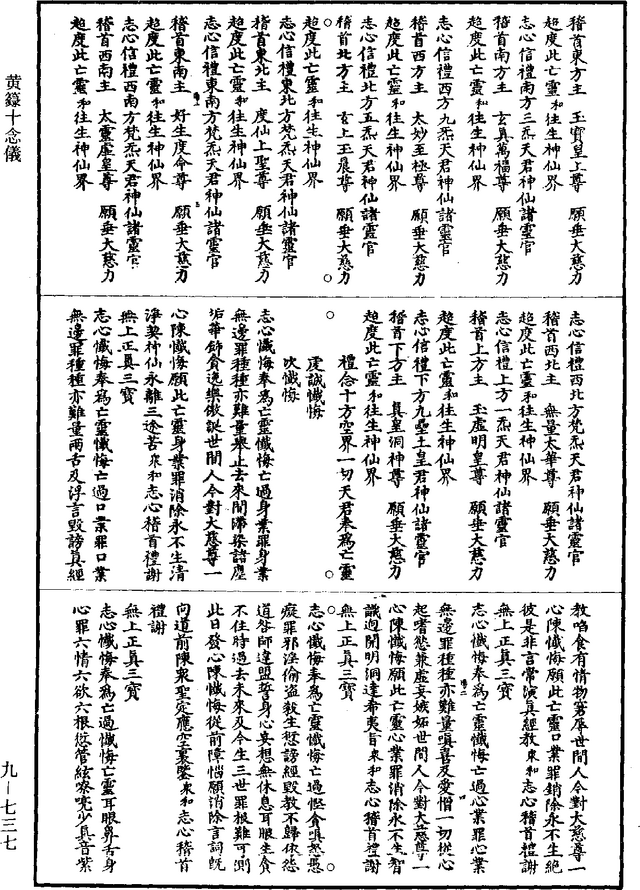 黄籙十念儀
稽首東方主　玉寶皇上尊　願垂大慈力
超度此亡靈和往生神仙界
志心信禮南方三炁天君神仙諸靈官
稽首南方主　玄真萬福尊　願垂大慈力
超度此亡靈和往生神仙界
志心信禮西方九炁天君神仙諸靈官
稽首西方主　太妙至極尊　願垂大慈力
超度此亡靈和往生神仙界
志心信禮北方五炁天君神仙諸靈官
稽首北方主　玄上玉晨尊　願垂大慈力
超度此亡靈和往生神仙界
志心信禮東北方梵炁天君神仙諸靈官
稽首東北主　度仙上聖尊　願垂大慈力
超度此亡靈和往生神仙界
志心信禮東南方梵炁天君神仙諸靈官
稽首東南主　好生度命尊　願垂大慈力
超度此亡靈和往生神仙界
志心信禮西南方梵炁天君神仙諸靈官
稽首西南主　太靈虛皇尊　願垂大慈力
超度此亡靈和往生神仙界
志心信禮西北方梵炁天君神仙諸靈官
稽首西北主　無量太華尊　願垂大慈力
超度此亡靈和往生神仙界
志心信禮上方一炁天君神仙諸靈官
稽首上方主　玉虛明皇尊　願垂大慈力
超度此亡靈和往生神仙界
志心信禮下方九壘土皇君神仙諸靈官
稽首下方主　真皇洞神尊　願垂大慈力
超度此亡靈和往生神仙界
禮念十方空界一切天君奉為亡靈
虔誠懺悔
吹懺悔
志心懺悔奉為亡靈懺悔亡過身業罪身業
無邊罪種種亦難量舉止去來間滯染諸塵
垢華飾貪逸樂傲誕世間人今對大慈尊一
心陳懺悔願此亡靈身業罪消除永不生清
淨契神仙永離三途苦來和志心稽首禮謝
無上正真三寶
志心懺悔奉為亡靈懺悔亡過口業罪口業
無邊罪種種亦難量兩舌及浮言毀謗真經
教啗食有情物罵辱世間人今對大慈尊一
心陳懺悔願此亡靈口業罪銷除永不生絕
彼是非言常演真經教來和志心稽首禮謝
無上正真三寶
志心懺悔奉為亡靈懺悔亡過心業罪心業
無邊罪種種亦難量嗔喜及愛憎一切從心
起嗜慾兼虛妄嫉妬世間人今對大慈尊一
心陳懺悔願此亡靈心業罪消除永不生智
識迥開明洞達希夷旨來和志心稽首禮謝
無上正真三寶
志心懺悔奉為亡靈懺悔亡過慳貪嗔怒惡
癡罪邪淫偷盜殺生愆謗經毀教不歸依怨
道咎師違盟誓身心妄想無休息耳眼生貪
不住時過去未來及今生三世罪根難可測
此日發心陳懺悔從前障惱願消除言詞旣
向道前陳衆聖定應空裏鑒來和志心稽首
禮謝
無上正真三寶
志心懺悔奉為亡過懺悔亡靈耳眼鼻舌身
心罪六情六欲六根愆管絃嘹喨少真音紫
九－七三七